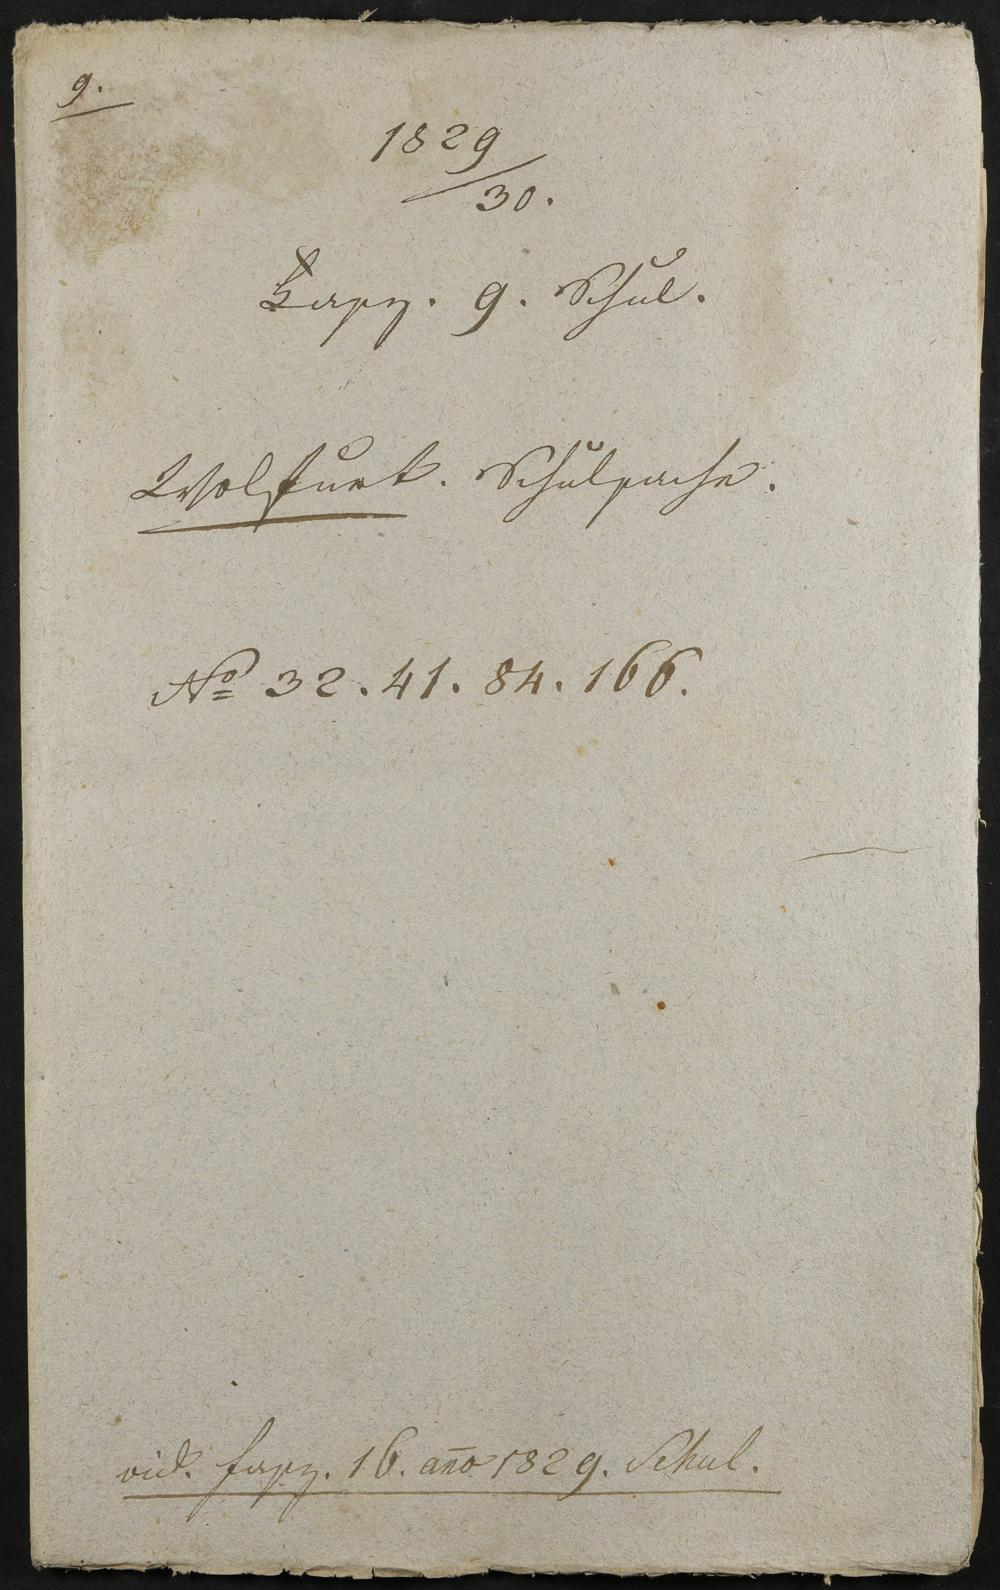 9.
1829
/30.
Fasz. 9. Schul.
Wolfurt. Schulsache.
No 32. 41. 84. 166.
vid. fasz. 16. año 1829. Schul.